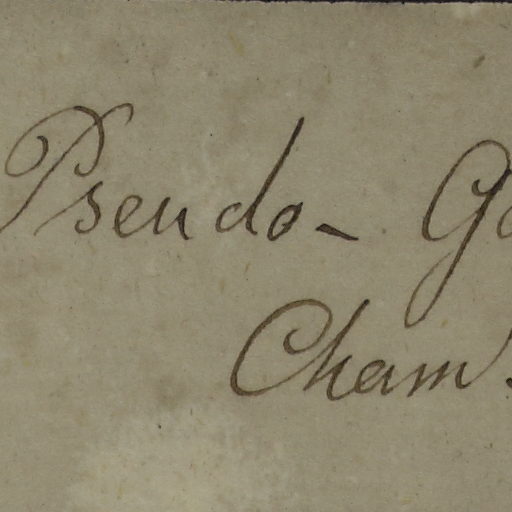 Pseudo-
Cham.